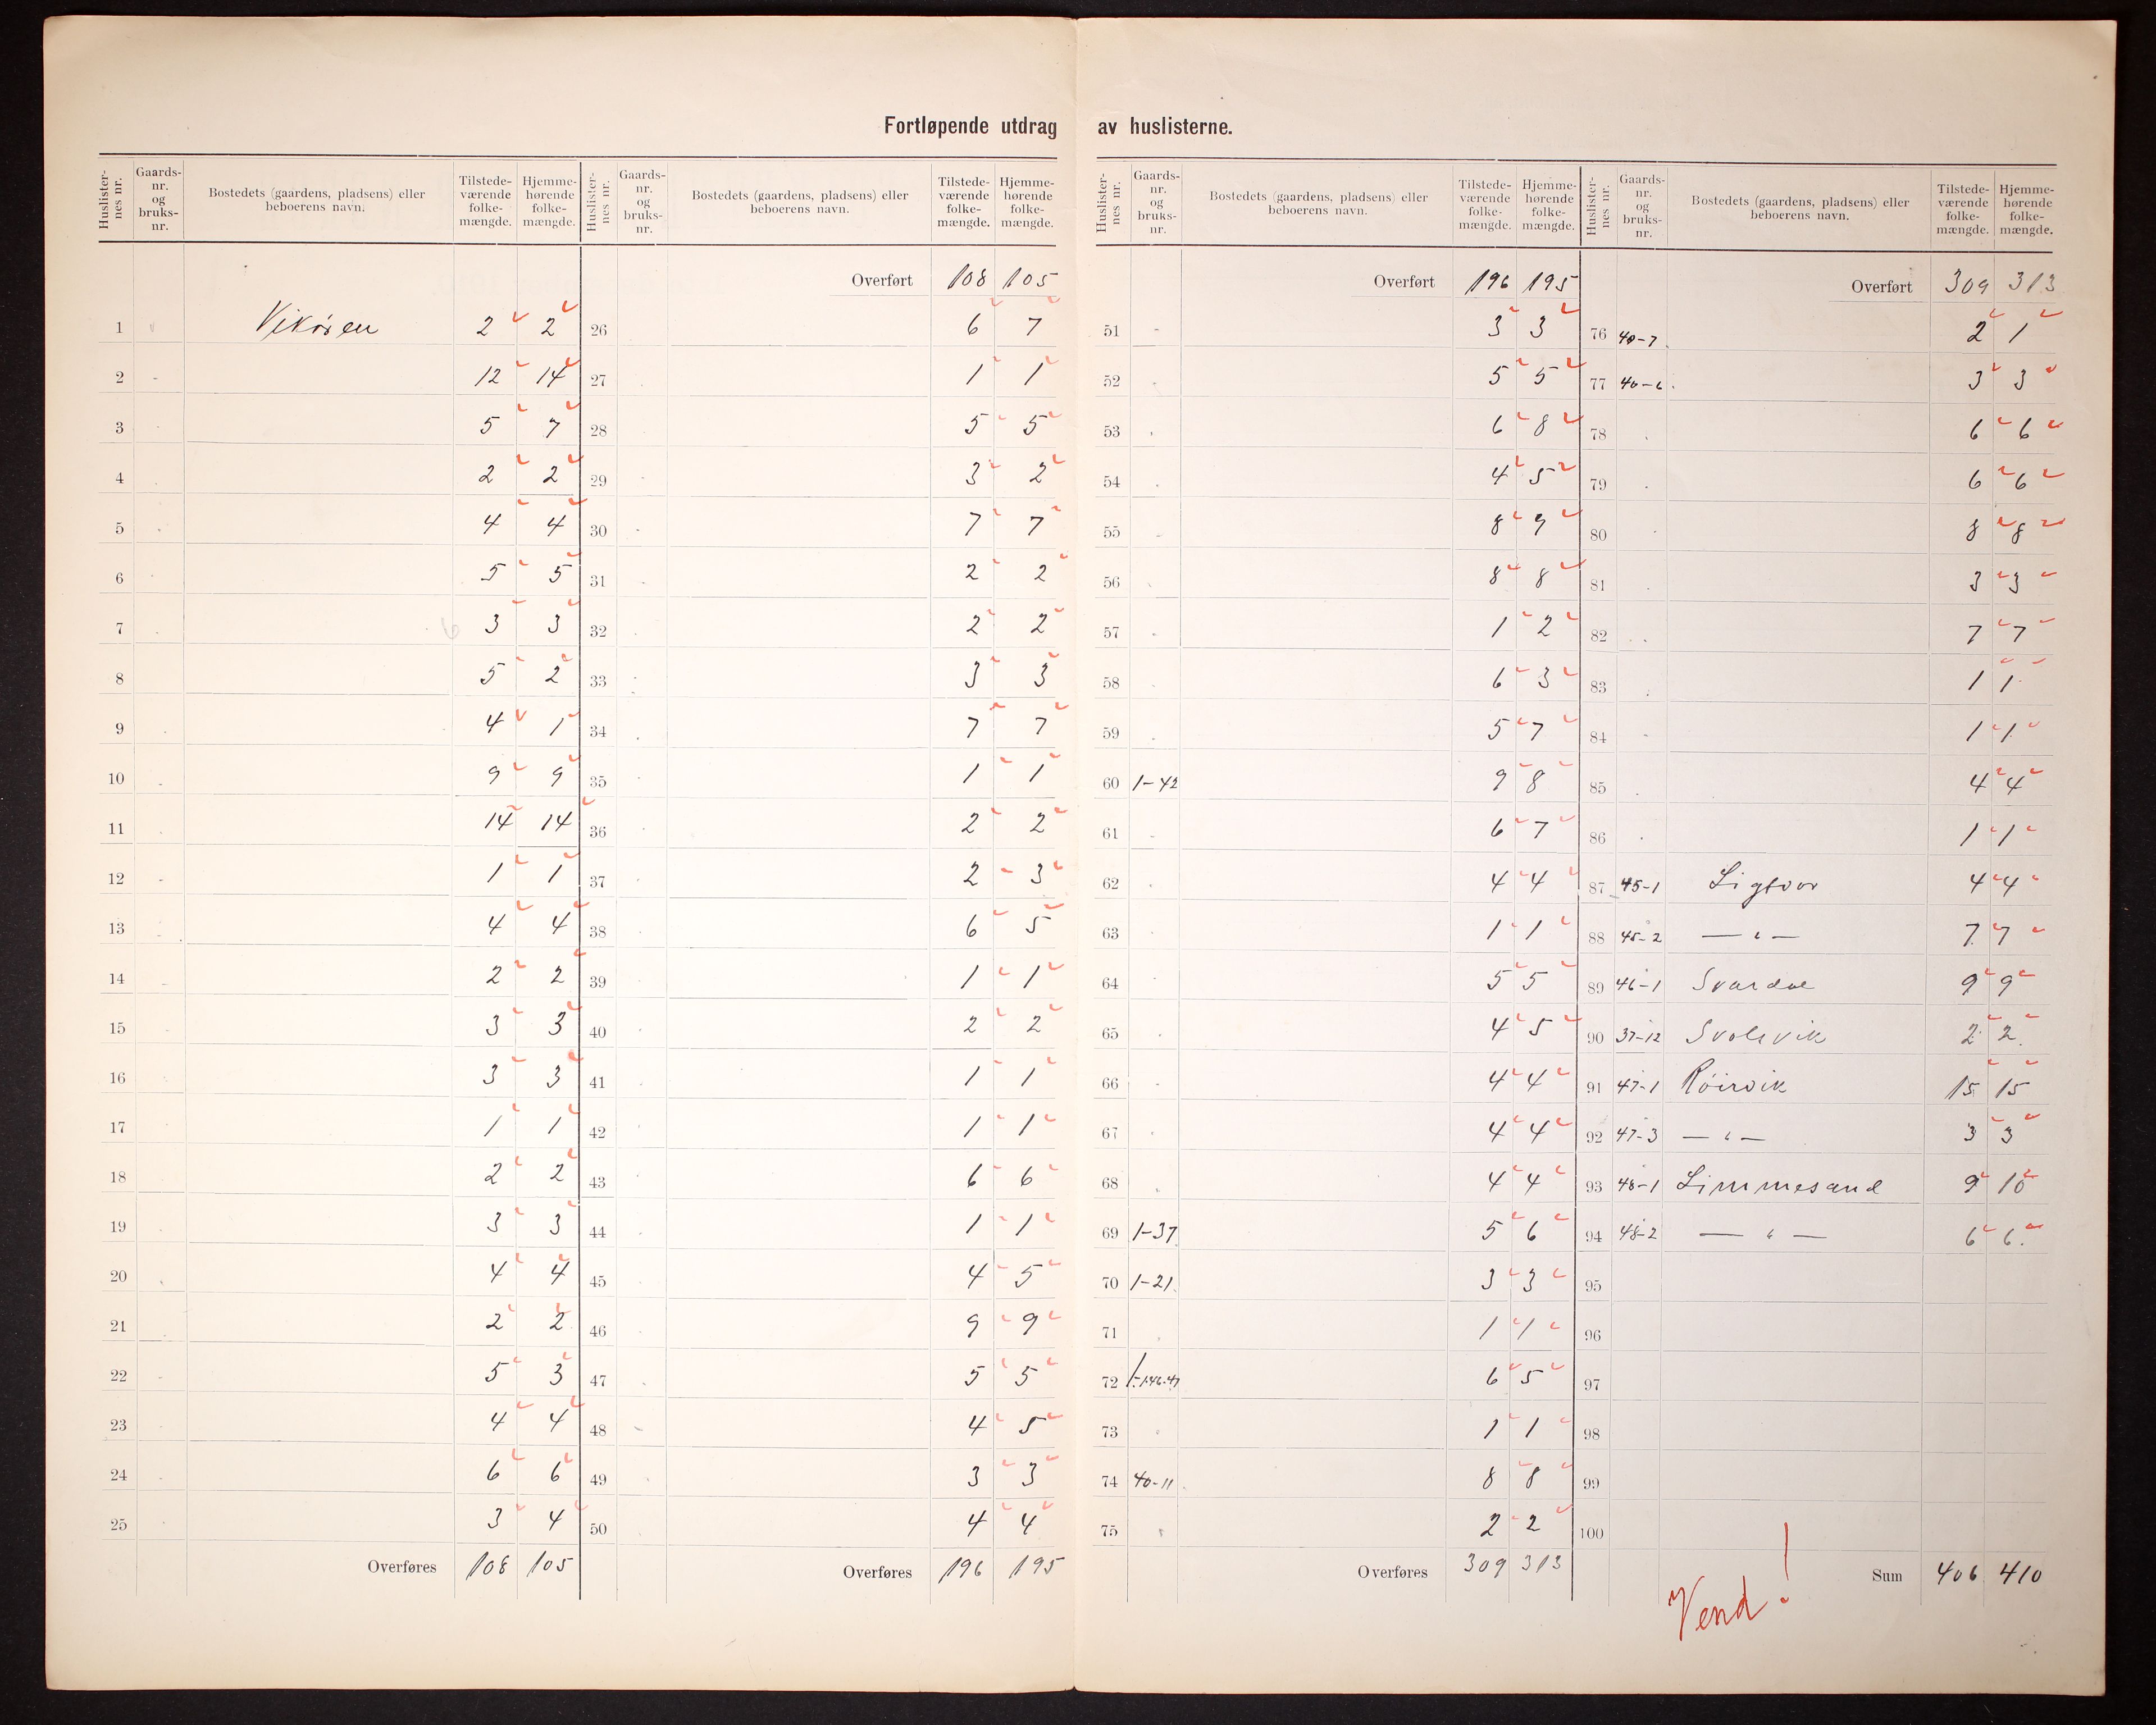 Fortløpende utdrag av huslisterne.
Huslisternes nr. Gaardsnr. og bruksnr. Bostedets (gaardens, pladsens) eller beboerens navn. Tilstedeværende folkemængde. Hjemmehørende folkemængde.
1 Vikøren 2 2
2 12 14
3 5 7
4 2 2
5 4 4
6 5 5
7 3 3
8 5 2
9 4 1
10 9 9
11 14 14
12 1 1
13 4 4
14 2 2
15 3 3
16 3 3
17 1 1
18 2 2
19 3 3
20 4 4
21 2 2
22 5 3
23 4 4
24 6 6
25 3 4
Overføres 108 105
Huslisternes nr. Gaardsnr. og bruksnr. Bostedets (gaardens, pladsens) eller beboerens navn. Tilstedeværende folkemængde. Hjemmehørende folkemængde.
Overført 108 105
26 6 7
27 1 1
28 5 5
29 3 2
30 7 7
31 2 2
32 2 2
33 3 3
34 7 7
35 1 1
36 2 2
37 2 3
38 6 5
39 1 1
40 2 2
41 1 1
42 1 1
43 6 6
44 1 1
45 4 5
46 9 9
47 5 5
48 4 5
49 3 3
50 4 4
Overføres 196 195
Huslisternes nr. Gaardsnr. og bruksnr. Bostedets (gaardens, pladsens) eller beboerens navn. Tilstedeværende folkemængde. Hjemmehørende folkemængde.
Overført 196 195
51 3 3
52 5 5
53 6 8
54 4 5
55 8 9
56 8 8
57 1 2
58 6 3
59 5 7
60 1-42 9 8
61 6 7
62 4 4
63 1 1
64 5 5
65 4 5
66 4 4
67 4 4
68 4 4
69 1-37 5 6
70 1-21 3 3
71 1 1
72 6 5
73 1 1
74 40-11 8 8
75 2 2
Overføres 309 313
Huslisternes nr. Gaardsnr. og bruksnr. Bostedets (gaardens, pladsens) eller beboerens navn. Tilstedeværende folkemængde. Hjemmehørende folkemængde.
Overført 309 313
76 40-7 2 1
77 40-6 3 3
78 6 6
79 6 6
80 8 8
81 3 3
82 7 7
83 1 1
84 1 1
85 4 4
86 1 1
87 45-1 Ligtvor 4 4
88 45-2 — " — 7 7
89 46-1 Svardal 9 9
90 37-12 Svolsvik 2 2
91 47-1 Röirvik 15 15
92 47-3 — " — 3 3
93 48-1 Limmesand 9 10
94 48-2 — " — 6 6
95
96
97
98
99
100
Sum 406 410
Vend!